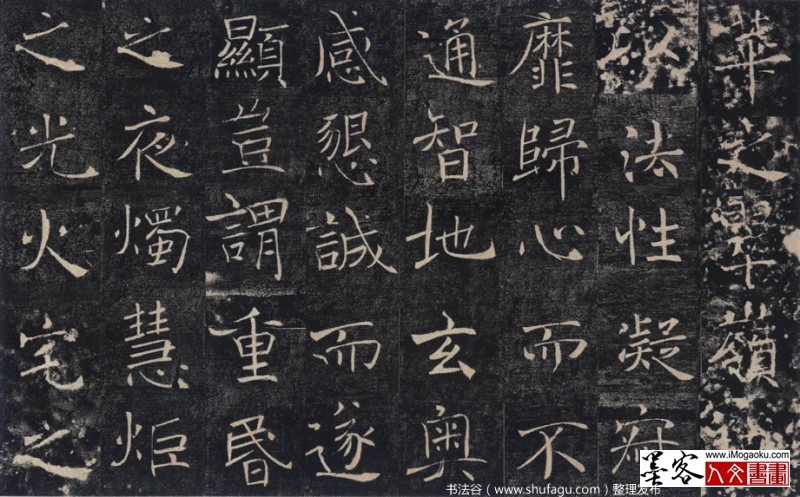 華文嶺
以法性凝寂
靡歸心而不
通智地玄奧
感懇誠而遂
顯豈謂重昏
之夜燭慧炬
之光火宅之
墨客
www.iMogaoku.com
人文書畫
书法谷（www.shufagu.com）整理发布